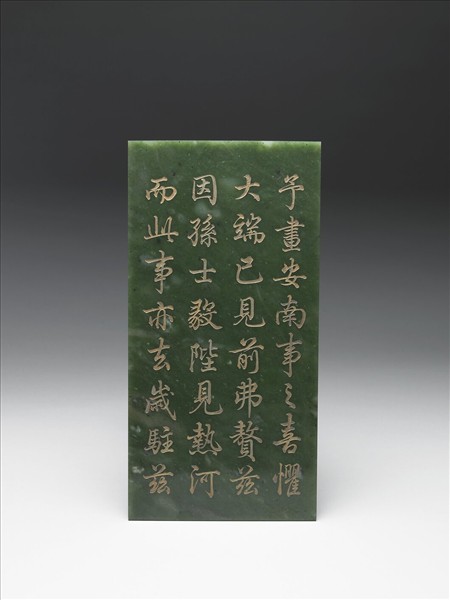 予畫安南事之喜懼
大端已見前弗贅茲
因孫士毅陛見熱河
而此事亦去歲駐茲